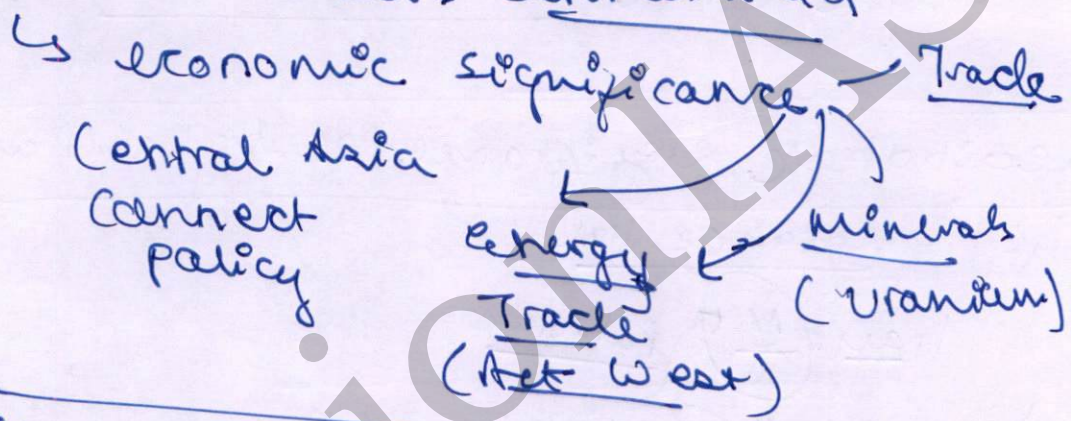 ↳ economic significance — Trade
Central Asia
Connect
policy
energy
Trade
(Act West)
minerals
(Uranium)